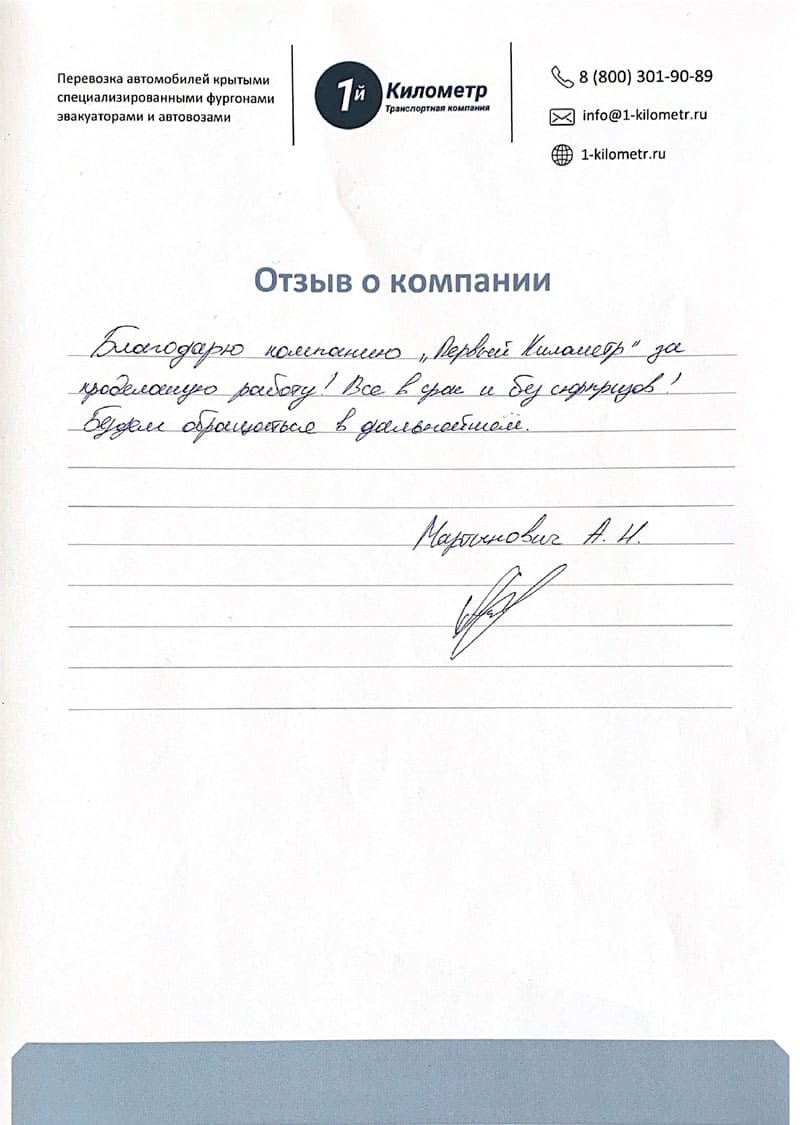 Перевозка автомобилей крытыми
специализированными фургонами
эвакуаторами и автовозами
1й Километр
Транспортная компания
8 (800) 301-90-89
info@1-kilometr.ru
1-kilometr.ru
Отзыв о компании
Благодарю компанию „Первый Километр" за
проделаную работу! Все в срок и без сюрпризов!
Будем обращаться в дальнейшем.
Мартынович А. Н.